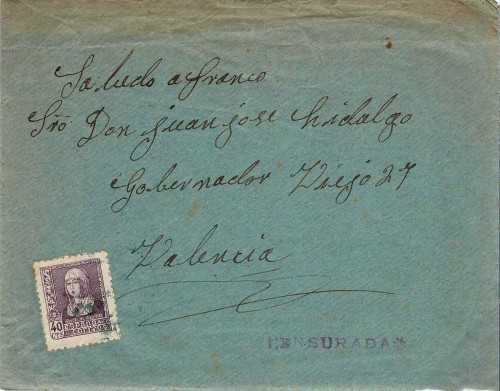 Saludo a Franco
Sro Don Juan jose hidalgo
Gobernador Viejo 27
Valencia
40
CTS
ESPAÑA
CORREOS
CENSURADA*